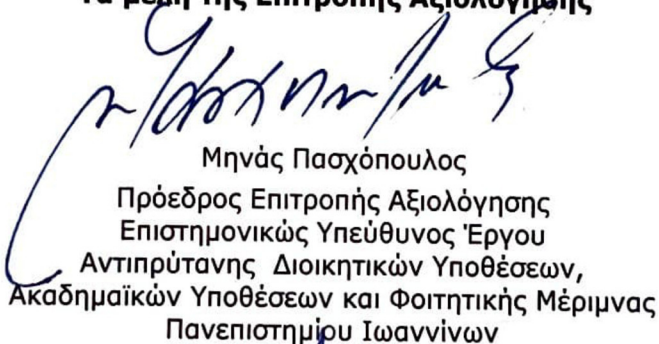 Τα μέλη της Επιτροπής Αξιολόγησης
Μηνάς Πασχόπουλος
Πρόεδρος Επιτροπής Αξιολόγησης
Επιστημονικώς Υπεύθυνος Έργου
Αντιπρύτανης Διοικητικών Υποθέσεων,
Ακαδημαϊκών Υποθέσεων και Φοιτητικής Μέριμνας
Πανεπιστημίου Ιωαννίνων